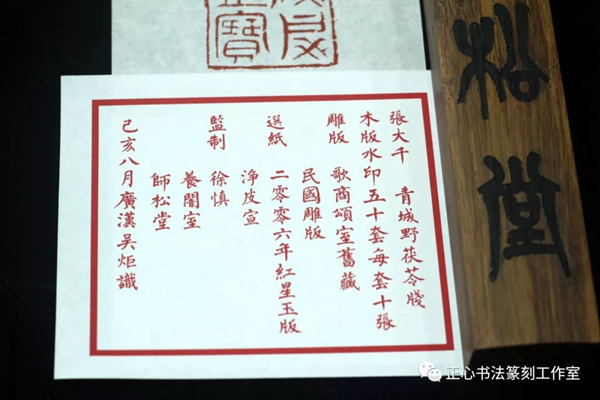 張大千 青城野茯苓牋
木版水印五十套每套十張
雕版 歌商頌室舊藏
民國雕版
選紙 二〇〇六年紅星玉版
淨皮宣
監制 徐慎
養闇室
師松堂
己亥八月廣漢吴炬識
松堂
正心书法篆刻工作室